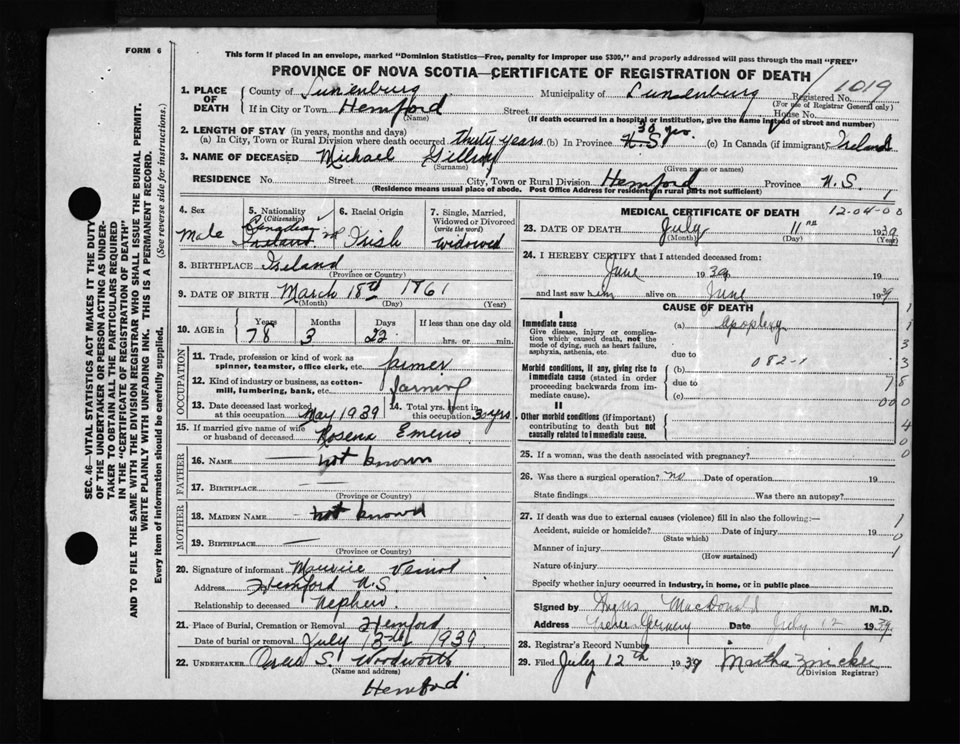 FORM 6
This form if placed in an envelope, marked "Dominion Statistics—Free, penalty for improper use $300," and properly addressed will pass through the mail "FREE"
PROVINCE OF NOVA SCOTIA—CERTIFICATE OF REGISTRATION OF DEATH
1019
1. PLACE OF DEATH County of Lunenburg Municipality of Lunenburg Registered No.
(For use of Registrar General only)
If in City or Town Hemford Street House No.
(Name) (If death occurred in a hospital or institution, give the name instead of street and number)
2. LENGTH OF STAY (in years, months and days)
(a) In City, Town or Rural Division where death occurred thirty years (b) In Province N.S. 30 yrs. (c) In Canada (if immigrant) Ireland
3. NAME OF DECEASED Michael
(Surname) (Given name or names)
RESIDENCE No Street City, Town or Rural Division Hemford Province N.S.
(Residence means usual place of abode. Post Office Address for residents in rural parts not sufficient)
4. Sex Male
5. Nationality (Citizenship) Canadian Ireland
6. Racial Origin Irish
7. Single, Married, Widowed or Divorced (write the word) widowed
8. BIRTHPLACE Ireland
(Province or Country)
9. DATE OF BIRTH March 18th 1861
(Month) (Day) (Year)
10. AGE in Years 78 Months 3 Days 22 If less than one day old hrs. or min.
OCCUPATION
11. Trade, profession or kind of work as spinner, teamster, office clerk, etc. farmer
12. Kind of industry or business, as cotton-mill, lumbering, bank, etc. farming
13. Date deceased last worked at this occupation May 1939 14. Total yrs. spent in this occupation 30 yrs.
15. If married give name of wife or husband of deceased Rosena
FATHER
16. NAME — not known
17. BIRTHPLACE —
(Province or Country)
MOTHER
18. MAIDEN NAME — not known
19. BIRTHPLACE —
(Province or Country)
20. Signature of informant Maurice Veinot
Address Hemford N.S.
Relationship to deceased Nephew.
21. Place of Burial, Cremation or Removal Hemford
Date of burial or removal July 13th 1939
22. UNDERTAKER S. Woodworth
(Name and address)
Hemford
MEDICAL CERTIFICATE OF DEATH 12-04-00
23. DATE OF DEATH July 11th 1939
(Month) (Day) (Year)
24. I HEREBY CERTIFY that I attended deceased from:
June 1939 19
and last saw him alive on June 1939
CAUSE OF DEATH
I
Immediate cause
Give disease, injury or complication which caused death, not the mode of dying, such as heart failure, asphyxia, asthenia, etc.
(a) apoplexy
due to
082-1
Morbid conditions, if any, giving rise to immediate cause (stated in order proceeding backwards from immediate cause).
(b)
due to
(c)
II
Other morbid conditions (if important) contributing to death but not causally related to immediate cause.
25. If a woman, was the death associated with pregnancy?
26. Was there a surgical operation? no Date of operation 19
State findings Was there an autopsy?
27. If death was due to external causes (violence) fill in also the following:—
Accident, suicide or homicide? Date of injury 19
(State which)
Manner of injury
(How sustained)
Nature of injury
Specify whether injury occurred in industry, in home, or in public place
Signed by Angus MacDonald M.D.
Address Date July 12 1939
28. Registrar's Record Number
29. Filed July 12th 1939 Martha Zwicker
(Division Registrar)
SEC. 46—VITAL STATISTICS ACT MAKES IT THE DUTY OF THE UNDERTAKER OR PERSON ACTING AS UNDERTAKER TO OBTAIN ALL THE PARTICULARS REQUIRED IN THE "CERTIFICATE OF REGISTRATION OF DEATH" AND TO FILE THE SAME WITH THE DIVISION REGISTRAR WHO SHALL ISSUE THE BURIAL PERMIT.
WRITE PLAINLY WITH UNFADING INK. THIS IS A PERMANENT RECORD.
Every item of information should be carefully supplied. (See reverse side for instructions.)